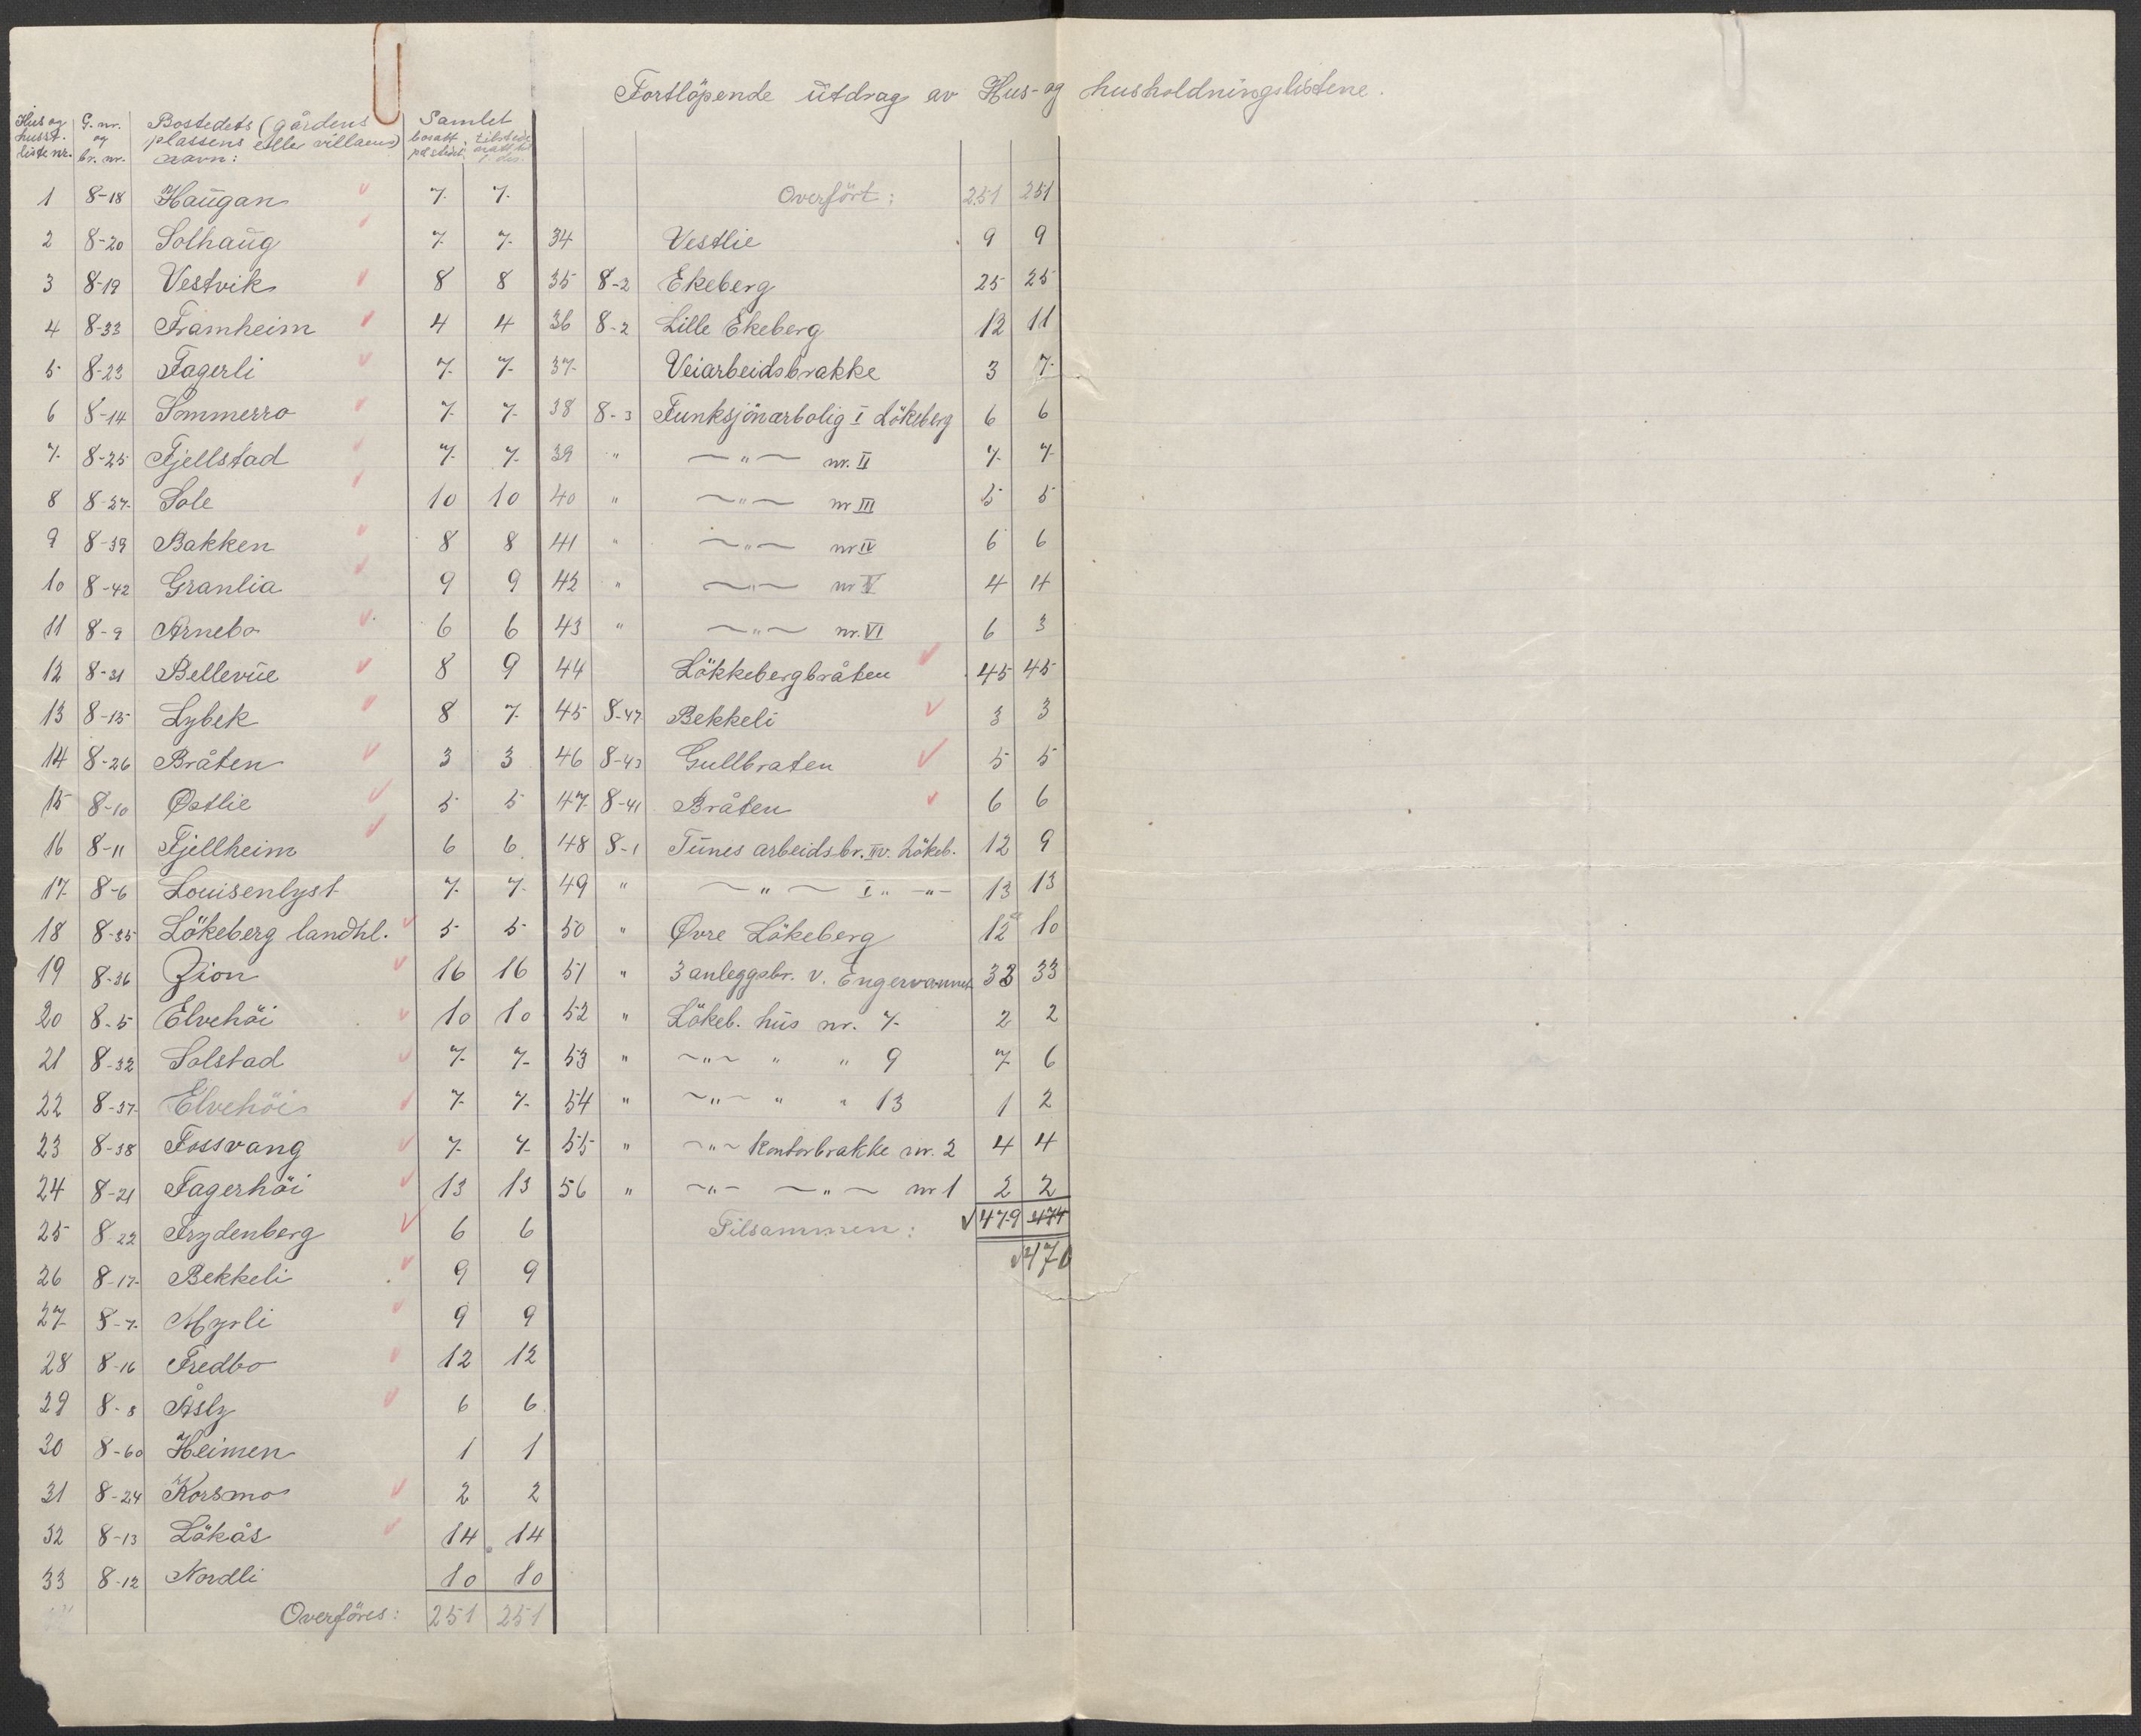 Fortlöpende utdrag av Hus- og husholdningslistene.
Hus og husst. liste nr. | G. nr. og br. nr. | Bostedets (gårdens plassens eller villaens) navn: | Samlet bosatt på stedet | tilstede natt til 1 des.
1 8-18 Haugan 7 7
2 8-20 Solhaug 7 7
3 8-19 Vestvik 8 8
4 8-33 Framheim 4 4
5 8-23 Fagerli 7 7
6 8-14 Sommerro 7 7
7 8-25 Fjellstad 7 7
8 8-27 Sole 10 10
9 8-39 Bakken 8 8
10 8-42 Granlia 9 9
11 8-9 Arnebo 6 6
12 8-31 Bellevue 8 9
13 8-15 Lybek 8 7
14 8-26 Bråten 3 3
15 8-10 Østlie 5 5
16 8-11 Fjellheim 6 6
17 8-6 Louisenlyst 7 7
18 8-35 Lökeberg landhl. 5 5
19 8-36 Zion 16 16
20 8-5 Elvehöi 10 10
21 8-32 Solstad 7 7
22 8-37 Elvehöi 7 7
23 8-38 Fossvang 7 7
24 8-21 Fagerhöi 13 13
25 8-22 Frydenberg 6 6
26 8-17 Bekkeli 9 9
27 8-7 Myrli 9 9
28 8-16 Fredbo 12 12
29 8-8 Åsly 6 6
30 8-60 Heimen 1 1
31 8-24 Korsmo 2 2
32 8-13 Lökås 14 14
33 8-12 Nordli 10 10
Overföres: 251 251
Overfört: 251 251
34 Vestlie 9 9
35 8-2 Ekeberg 25 25
36 8-2 Lille Ekeberg 12 11
37 Veiarbeidsbrakke 3 7
38 8-3 Funksjönærbolig I Lökeberg 6 6
39 " —"— nr. II 7 7
40 " —"— nr III 5 5
41 " —"— nr IV 6 6
42 " —"— nr V 4 4
43 " —"— nr. VI 6 3
44 Lökkebergbråten 45 45
45 8-47 Bekkeli 3 3
46 8-43 Gullbraten 5 5
47 8-41 Bråten 6 6
48 8-1 Tunes arbeidsbr. II v. Lökeb. 12 9
49 " —"— I " —"— 13 13
50 " Øvre Lökeberg 12 10
51 " 3 anleggsbr. v. Engervannet 33 33
52 " Lökeb. hus nr. 7 2 2
53 " —"— " " 9 7 6
54 " —"— " " 13 1 2
55 " —"— Kontorbrakke nr. 2 4 4
56 " —"— —"— nr 1 2 2
Tilsammen: 479 474
470